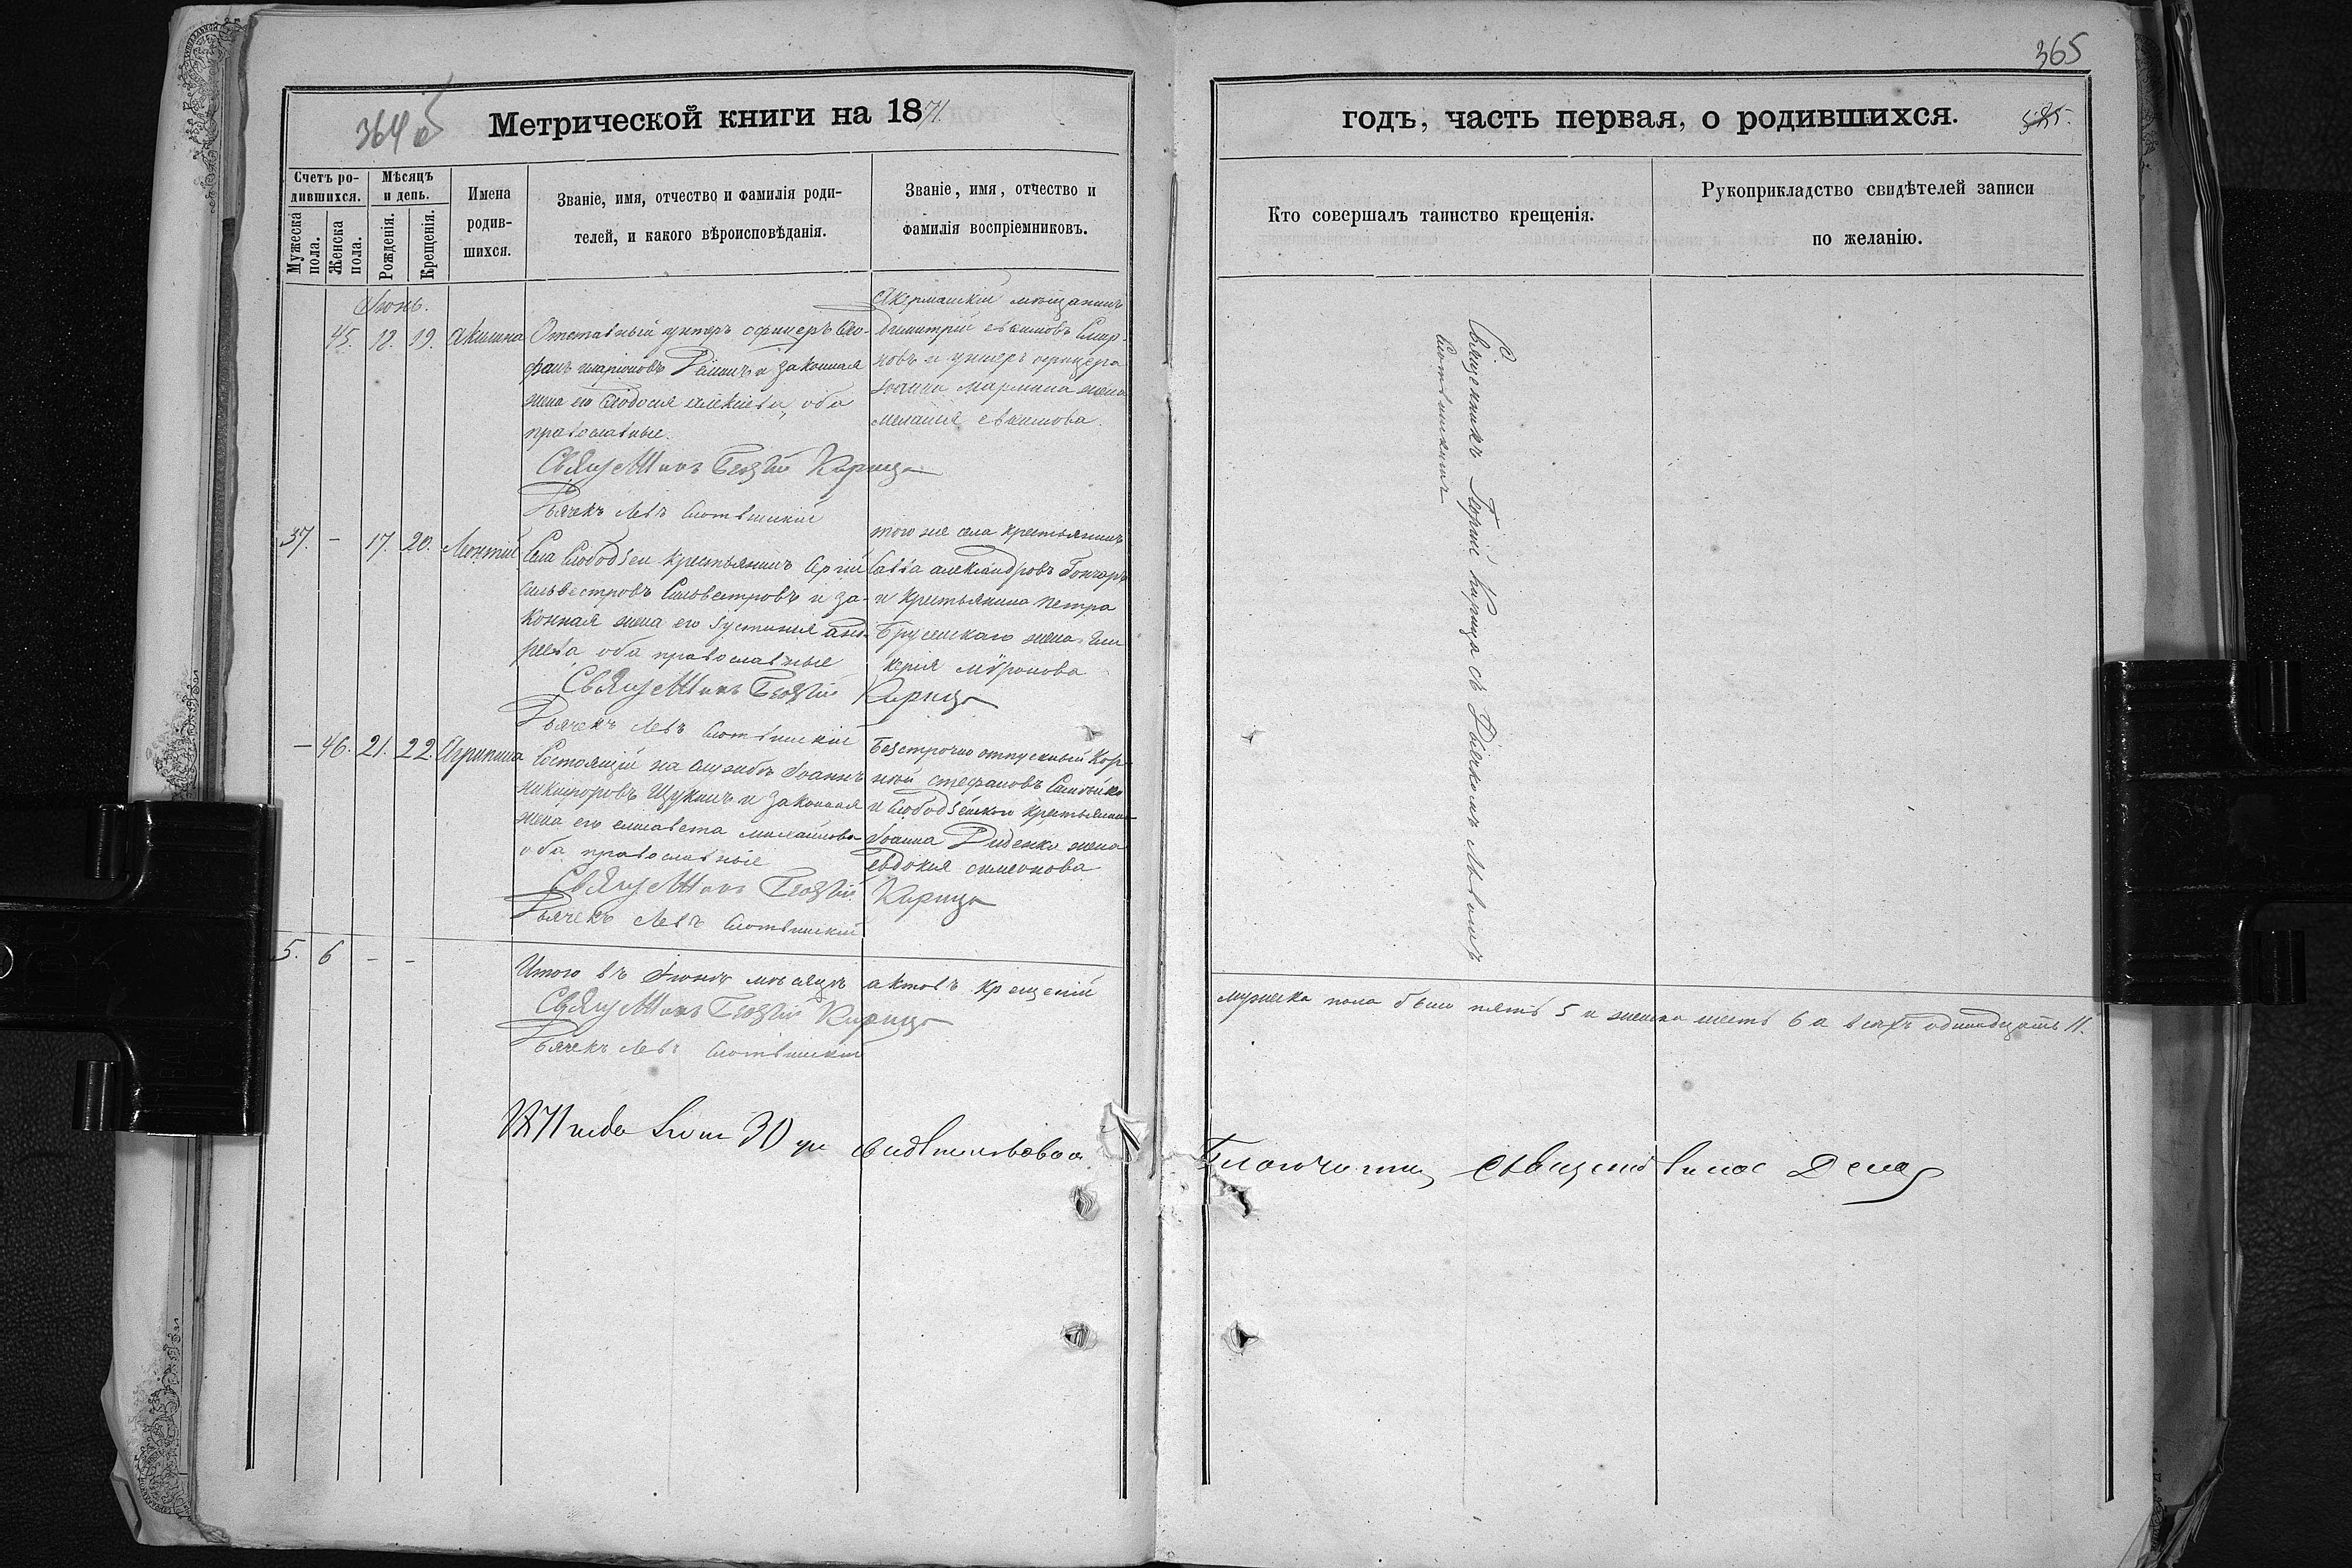 365
364 об
Метрической книги на 1871.
годъ, часть первая, о родившихся.
Счетъ родившихся.
Мѣсяцъ и день.
Мужеска пола.
Женска пола.
Рожденія.
Крещенія.
Имена родившихся.
Званіе, имя, отчество и фамилія родителей, и какого вѣроисповѣданія.
Званіе, имя, отчество и фамилія воспріемниковъ.
Кто совершалъ таинство крещенія.
Рукоприкладство свидѣтелей записи
по желанію.
Іюнь.
45. 18. 19. Акилина
Отставный унтеръ офицеръ Сте-
фанъ иларіоновъ и законная
жена его Ѳеодосія алексіева, оба
православные.
Акерманскій мѣщанинъ
Димитрій евѳимовъ Смир-
новъ и унтеръ офицера
Іоанна жена
меланія евѳимова.
Священникъ Георгій Кирица
Дьячекъ Левъ
37. - 17. 20. Леонтій
Села Слободзеи крестьянинъ
Сильвестровъ Сильвестровъ и за-
конная жена его Іустинія анд-
реева оба православные
того же села крестьянинъ
Савва александровъ Гончаръ
и крестьянина Петра
жена Гли-
керія Миронова
Священникъ Георгій Кирица
Дьячекъ Левъ
- 46. 21. 22. Агрипина
Состоящій на службѣ Іоаннъ
никифоровъ Щукинъ и законная
жена его елисавета михайлова
оба православные
Безсрочно отпускный Кор-
ній стефановъ
и Слободзейскаго крестьянина
Іоанна Диденко жена
евдокія симеонова
Священникъ Георгій Кирица
Дьячекъ Левъ
5. 6 - -
Итого въ Іюнѣ мѣсяцѣ актовъ крещеній
мужеска пола было пять 5 и женска шесть 6 а всѣхъ одинадцать 11.
Священникъ Георгій Кирица
Дьячекъ Левъ
Священникъ Георгій Кирица съ Дьячкомъ Львомъ
1871 года 30 свидѣтельствовалъ
Благочинный священникъ